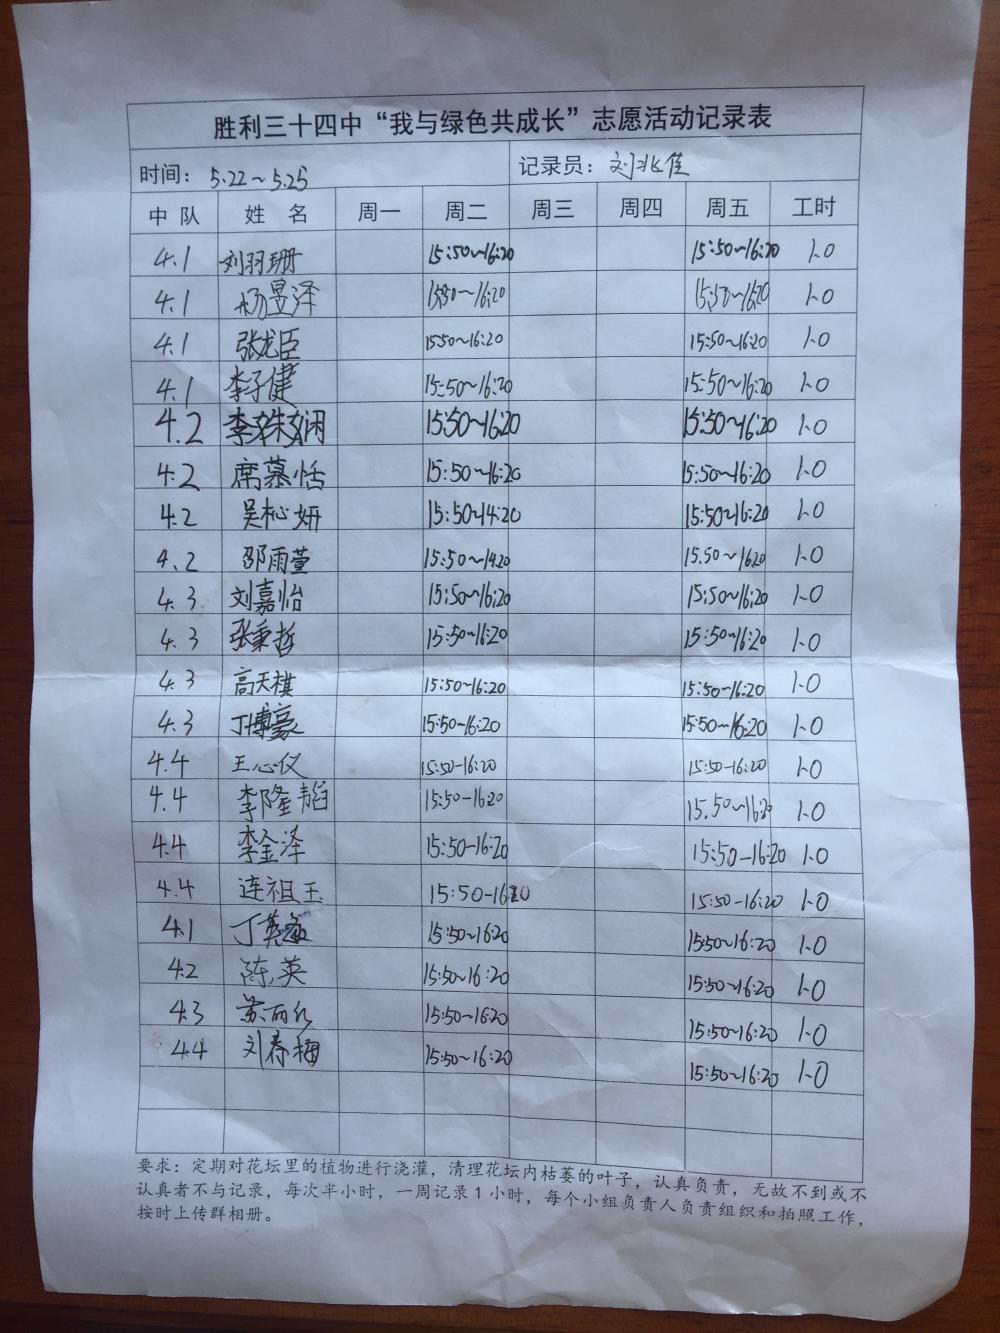 胜利三十四中“我与绿色共成长”志愿活动记录表
时间: 5.22~5.25 记录员: 刘兆佳
中 队 姓 名 周一 周二 周三 周四 周五 工时
4.1 刘羽珊 15:50~16:20 15:50~16:20 1.0
4.1 杨昱泽 15:50~16:20 15:50~16:20 1.0
4.1 张龙臣 15:50~16:20 15:50~16:20 1.0
4.1 李子健 15:50~16:20 15:50~16:20 1.0
4.2 李姝娴 15:50~16:20 15:50~16:20 1.0
4.2 席慕恬 15:50~16:20 15:50~16:20 1.0
4.2 吴杺妍 15:50~14:20 15:50~16:20 1.0
4.2 邵雨萱 15:50~14:20 15:50~16:20 1.0
4.3 刘嘉怡 15:50~16:20 15:50~16:20 1.0
4.3 张秉哲 15:50~16:20 15:50~16:20 1.0
4.3 高天棋 15:50~16:20 15:50-16:20 1.0
4.3 丁博豪 15:50~16:20 15:50~16:20 1.0
4.4 王心仪 15:50-16:20 15:50-16:20 1.0
4.4 李隆韬 15:50-16:20 15.50~16:20 1.0
4.4 李金泽 15:50-16:20 15:50-16:20 1.0
4.4 连祖玉 15:50-16:20 15:50-16:20 1.0
4.1 丁英 15:50~16:20 15:50~16:20 1.0
4.2 陈英 15:50~16:20 15:50~16:20 1.0
4.3 苏丽红 15:50~16:20 15:50~16:20 1.0
4.4 刘春梅 15:50~16:20 15:50~16:20 1.0
要求: 定期对花坛里的植物进行浇灌, 清理花坛内枯萎的叶子, 认真负责, 无故不到或不
认真者不与记录, 每次半小时, 一周记录1小时, 每个小组负责人负责组织和拍照工作,
按时上传群相册。